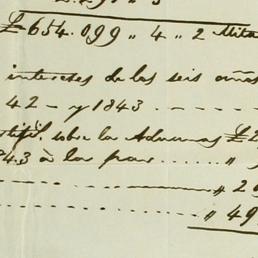 £654.099 „ 4 „ 2 Mita
intereses de los seis años
42 – y 1843
sobre la Aduanas £2
43 à la par „
„ 2
„ 49